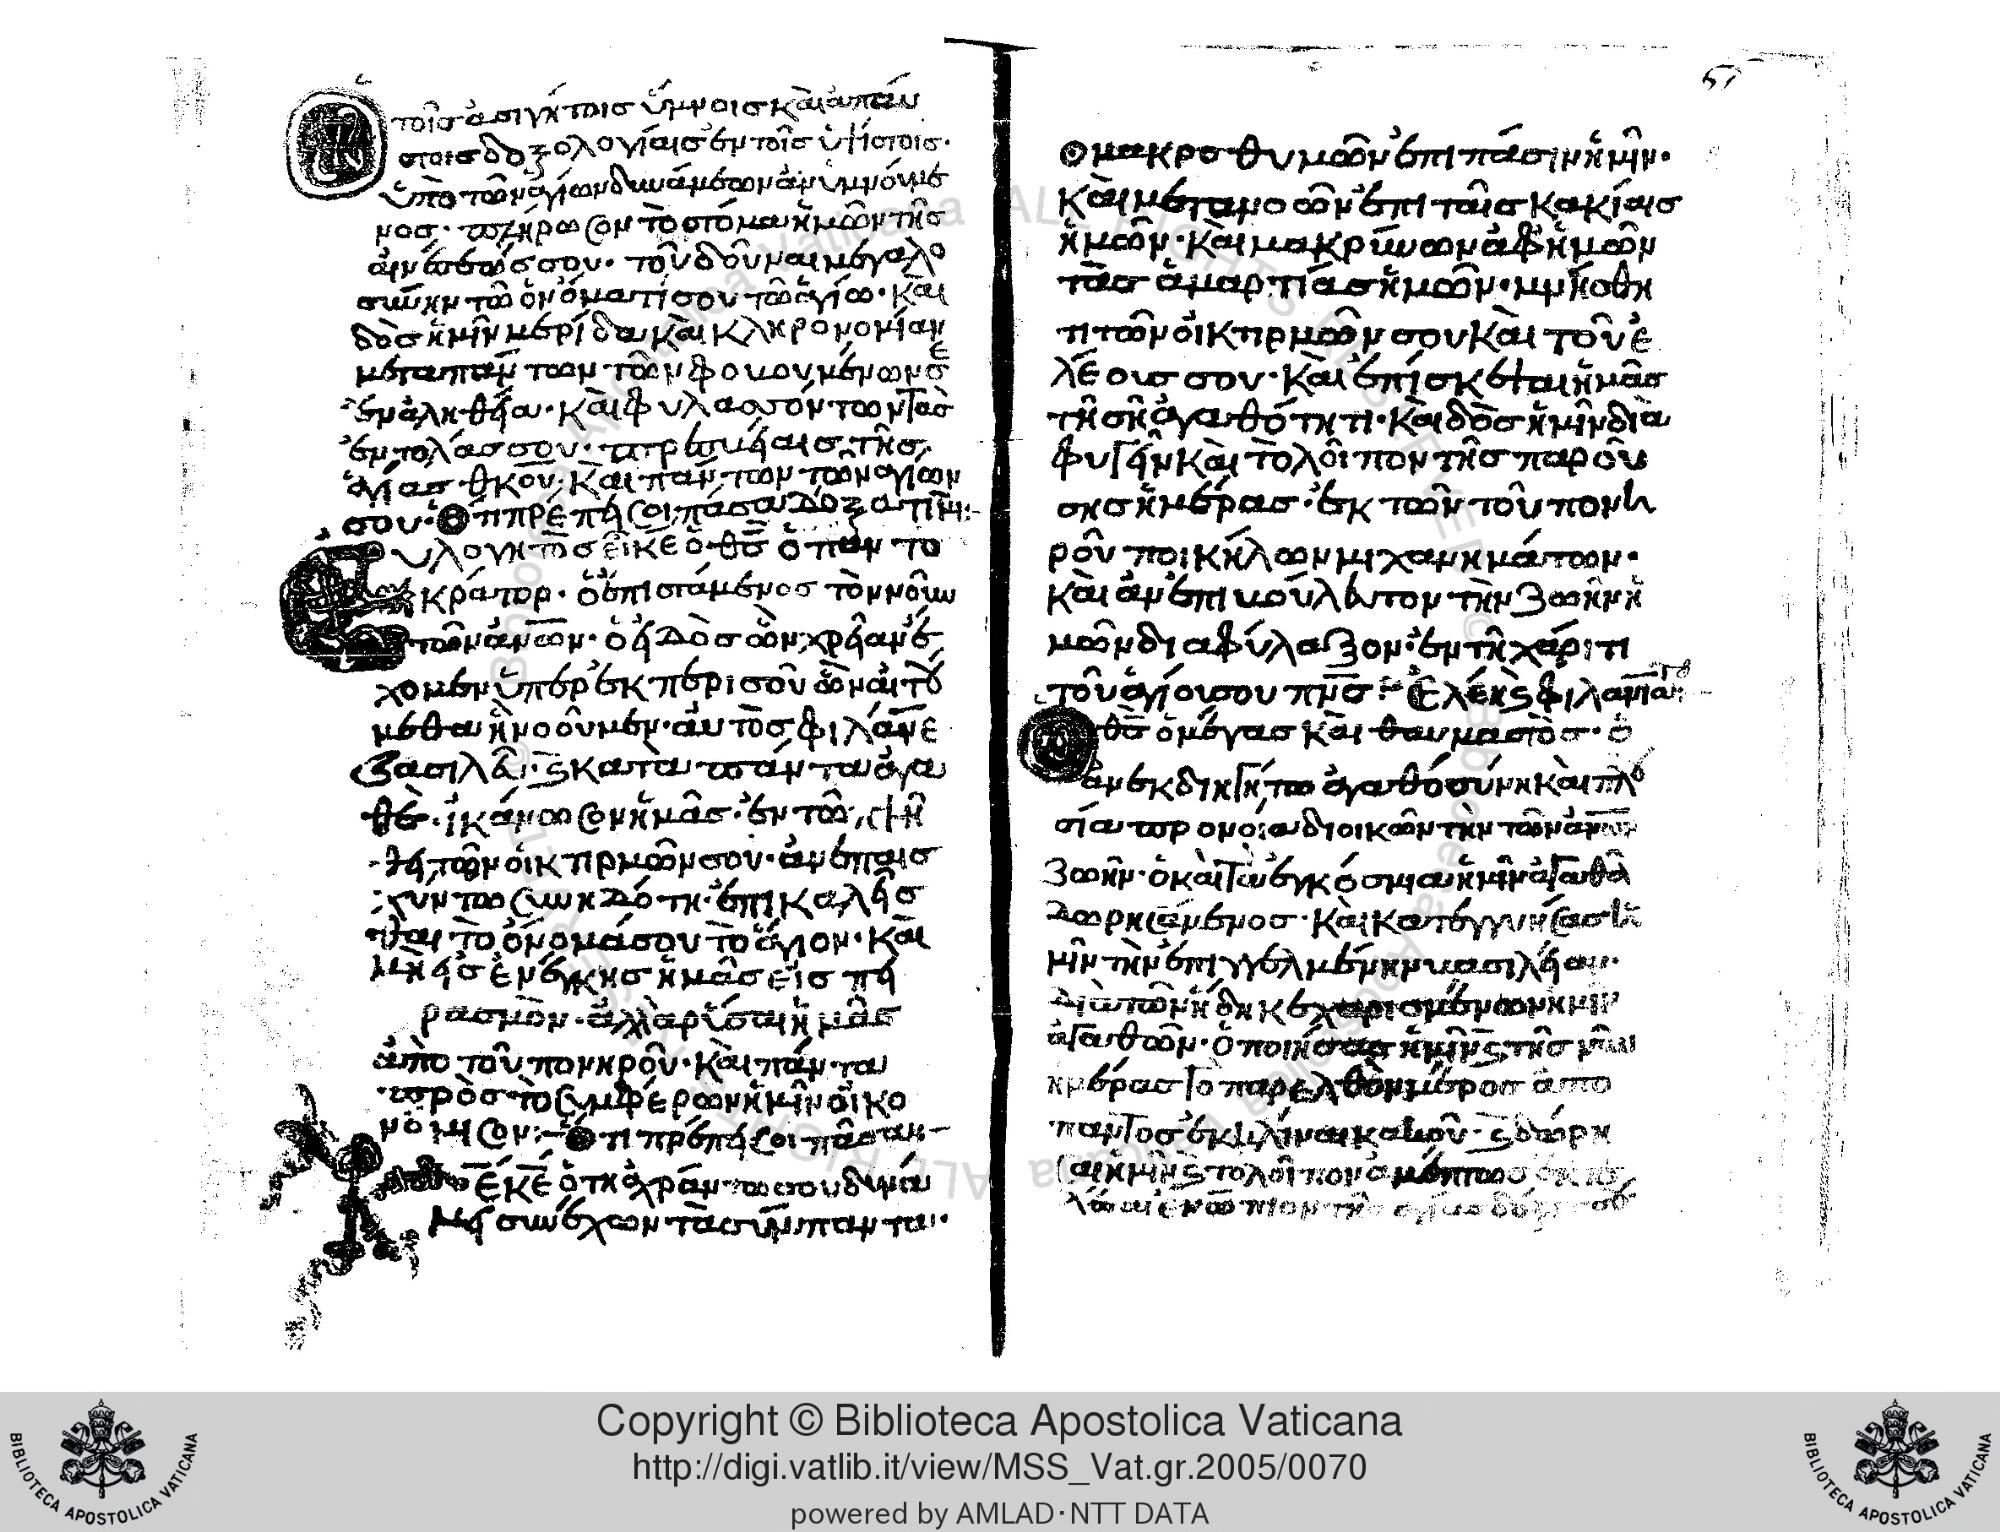 Ὁ τοῖς ἀσιγήτοις ὕμνοις καὶ ἀπαύ
στοις δοξολογίαις ἐν τοῖς ὑψίστοις·
ὑπὸ τῶν ἁγίων δυνάμεων ἀνυμνούμε
νος· πλήρωσον τὸ στόμα ἡμῶν τῆς
αἰνέσεώς σου· τοῦ δοῦναι μεγαλο
σύνην τῶ ὀνόματί σου τῶ ἁγίω· καὶ
δὸς ἡμῖν μερίδα καὶ κληρονομίαν
μετὰ πάντων τῶν φοβουμένων σε
ἐν ἀληθεία· καὶ φυλασσόντων τὰς
ἐντολάς σου· πρεσβείαις τῆς
ἁγίας θκου· καὶ πάντων τῶν ἁγίων
σου· Ὅτι πρέπει σοι πᾶσα δόξα τιμ
Εὐλογητὸς εἶ κε ὁ θς ὁ παντο
κράτορ· ὁ ἐπιστάμενος τὸν νοῦν
τῶν ανων· ὁ εἰδὸς ὧν χρείαν ἔ
χομεν ὑπὲρ ἐκ περισοῦ ὧν αἰτού
μεθα ἢ νοοῦμεν· αὐτὸς φιλανε
βασιλεῦ· ϗ κατὰ πάντα ἀγα
θὲ· ἱκάνωσον ἡμᾶς· ἐν τῶ πλή
θει τῶν οἰκτιρμῶν σου· ἀνεπαισ
χύντω συνηδότη· ἐπικαλεῖσ
θαι τὸ ὄνομά σου τὸ ἅγιον· καὶ
μὴ εἰσενέγκης ἡμᾶς εἰς πει
ρασμὸν· ἀλλὰ ρῦσαι ἡμᾶς
ἀπὸ τοῦ πονηροῦ· καὶ πάντα
πρὸς τὸ συμφέρων ἡμῖν οἰκο
νόμισον· Ὅτι πρέπει σοι πᾶσα
κε κε ὁ τῆ ἀχράντω σου δυνά
μει συνέχων τὰ σύμπαντα·
57
ὁ μακροθυμῶν ἐπὶ πάσιν ἡμῖν·
καὶ μεταμοῶν ἐπὶ ταῖς κακίαις
ἡμῶν· καὶ μακρύνων ἀφ ἡμῶν
τὰς ἁμαρτίας ἡμῶν· μνήσθη
τι τῶν οἰκτιρμῶν σου καὶ τοῦ ἐ
λέους σου· καὶ ἐπίσκεψαι ἡμᾶς
τῆ σῆ ἀγαθότητι· καὶ δὸς ἡμῖν δια
φυγεῖν καὶ τὸ λοῖπον τῆς παρού
σης ἡμέρας· ἐκ τῶν τοῦ πονη
ροῦ ποικήλων μιχανημάτων·
καὶ ἀνεπιβούλευτον τὴν ζωὴν ἡ
μῶν διαφύλαξον· ἐν τῆ χάριτι
τοῦ ἁγίου σου πνς· Ἐλέει ϗ φιλανια τοῦ
Ὁ θς ὁ μέγας καὶ θαυμαστὸς· ὁ
ἀνεκδιηγήτω ἀγαθοσύνη καὶ πλου
σία προνοία διοικῶν τὴν τῶν ανων
ζωὴν· ὁ καὶ τὰ ἐγκόσμια ἡμῖν ἀγαθὰ
δωρησάμενος· καὶ κατεγγυήσας ἡ
μῖν τὴν ἐπιγγελμένην βασιλείαν·
διὰ τῶν ἤδη κεχαρισμένων ἡμῖν
ἀγαθῶν· ὁ ποιήσας ἡμῖν ϗ τῆς νῦν
ἡμέρας τὸ παρελθὸν μέρος ἀπὸ
παντὸς ἐκκλίναι κακοῦ· ϗ δώρη
σαι ἡμῖν ϗ τὸ λοῖπον ἀμέπτως ἐκτε
λέσαι ἐνώπιον τῆς ἁγίας δόξης σου
Copyright © Biblioteca Apostolica Vaticana
http://digi.vatlib.it/view/MSS_Vat.gr.2005/0070
powered by AMLAD·NTT DATA
BIBLIOTECA APOSTOLICA VATICANA
BIBLIOTECA APOSTOLICA VATICANA